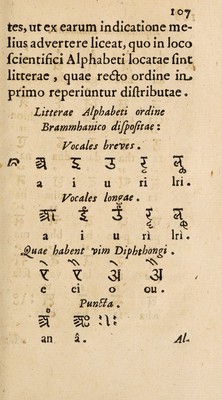 107
tes, ut ex earum indicatione me-
lius advertere liceat, quo in loco
ſcientifici Alphabeti locatae ſint
litterae, quae recto ordine in
primo reperiuntur diſtributae.
Litterae Alphabeti ordine
Brammhanico diſpoſitae:
Vocales breves.
अ इ उ
a i u ri lri.
Vocales longae.
आ ई ऊ
a i u rì lrì.
Quae habent vim Diphthongi.
ए ऐ ओ औ
e ei o ou.
Puncta.
अं अः
an â. Al-